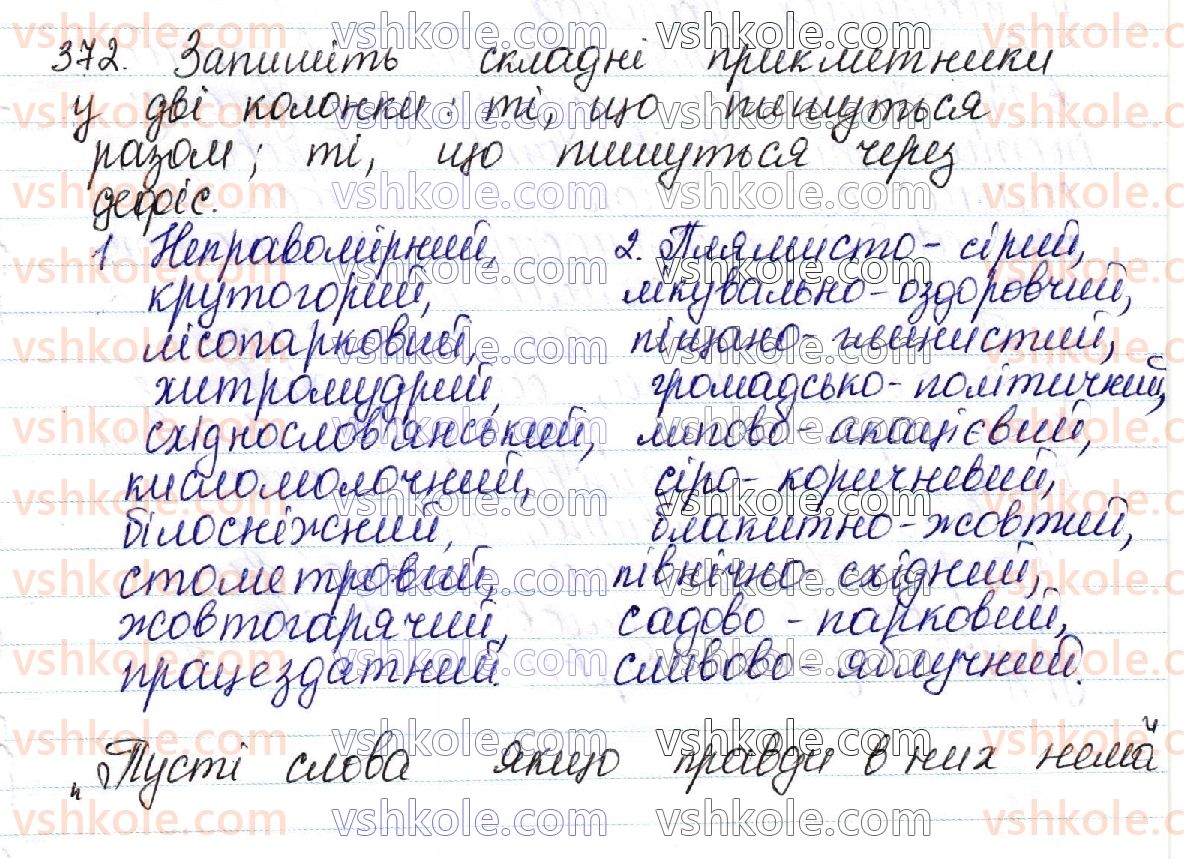 372. Запишіть складні прикметники
у дві колонки: ті, що пишуться
разом; ті, що пишуться через
дефіс.
1. Неправомірний, 2. Плямисто-сірий,
крутогорий, лікувально-оздоровчий,
лісопарковий, піщано-глинистий,
хитромудрий, громадсько-політичний,
східнослов'янський, липово-акацієвий,
кисломолочний, сіро-коричневий,
білосніжний, блакитно-жовтий,
стометровий, північно-східний,
жовтогарячий, садово-парковий,
працездатний. сливово-яблучний.
„Пусті слова якщо правди в них нема"